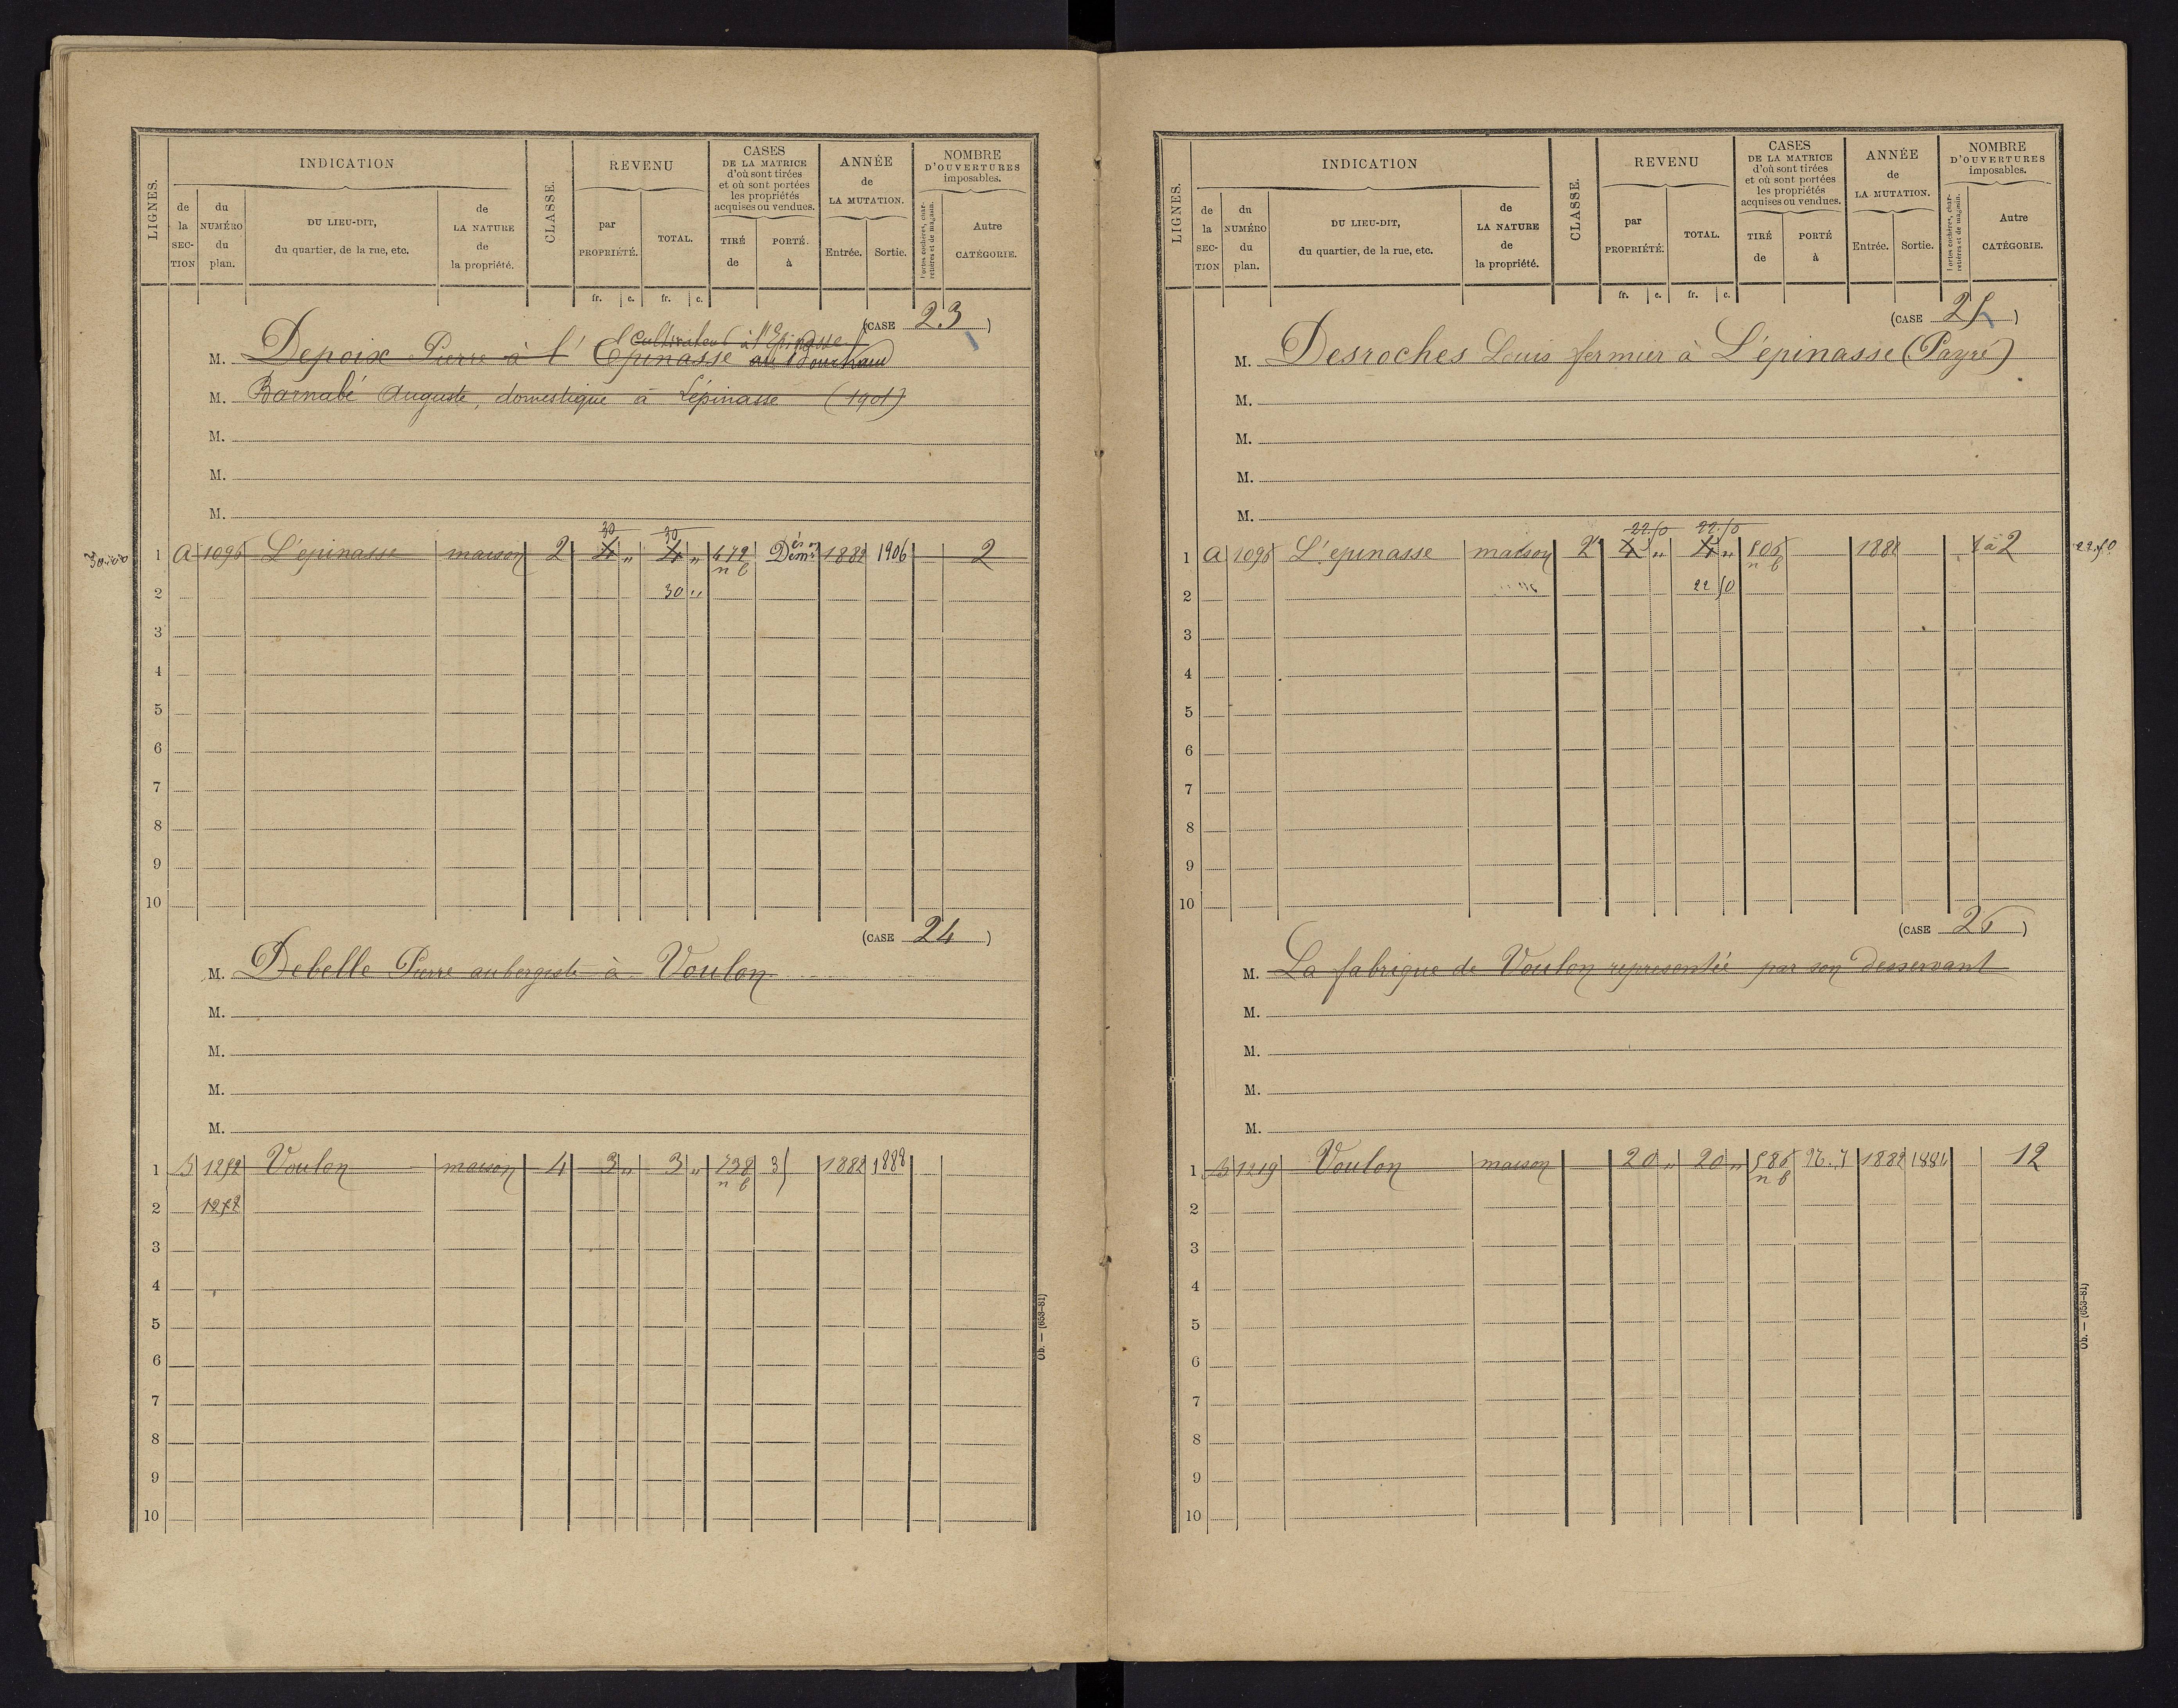 LIGNES.
INDICATION
CLASSE.
REVENU
CASES
DE LA MATRICE
d'où sont tirées
et où sont portées
les propriétés
acquises ou vendues.
ANNÉE
de
LA MUTATION.
NOMBRE
D'OUVERTURES
imposables.
de la SECTION
du NUMÉRO du plan.
DU LIEU-DIT,
du quartier, de la rue, etc.
de LA NATURE de la propriété.
par PROPRIÉTÉ.
TOTAL.
TIRÉ de
PORTÉ. à
Entrée.
Sortie.
Portes cochères, charretières et de magasin.
Autre CATÉGORIE.
fr. c. fr. c.
(CASE 23)
cultivateur à l'Epinasse
M. Depoix Pierre à l'Epinasse
M. Barnabé Auguste, domestique à Lépinasse (1901)
M.
M.
M.
30 30
30.00 1 A 1096 L'epinasse maison 2 4 " 4 " 1882 1906 2
n b
2 30 "
3
4
5
6
7
8
9
10
(CASE 24)
M. Debelle Pierre aubergiste à Voulon
M.
M.
M.
M.
1 B 1252 Voulon maison 4 3 " 3 " 1882 1888
n b
2
3
4
5
6
7
8
9
10
Ob. — (653-81)
LIGNES.
INDICATION
CLASSE.
REVENU
CASES
DE LA MATRICE
d'où sont tirées
et où sont portées
les propriétés
acquises ou vendues.
ANNÉE
de
LA MUTATION.
NOMBRE
D'OUVERTURES
imposables.
de la SECTION
du NUMÉRO du plan.
DU LIEU-DIT,
du quartier, de la rue, etc.
de LA NATURE de la propriété.
par PROPRIÉTÉ.
TOTAL.
TIRÉ de
PORTÉ à
Entrée.
Sortie.
Portes cochères, charretières et de magasin.
Autre CATÉGORIE.
fr. c. fr. c.
(CASE 25)
M. Desroches Louis fermier à L'épinasse (Payré)
M.
M.
M.
M.
22.50 22.50
1 A 1095 L'epinasse maison 2 4 " 4 " 1882 2 22.50
n b
2 22 50
3
4
5
6
7
8
9
10
(CASE 26)
M. La fabrique de Voulon représentée par son desservant
M.
M.
M.
M.
1 B 1219 Voulon maison 20 " 20 " 1882 1884 12
n b
2
3
4
5
6
7
8
9
10
Ob. — (653-81)